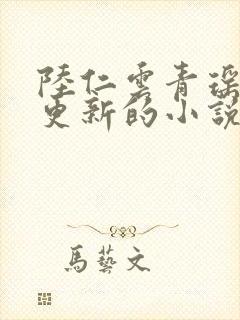 陸仁雲青瑶
更新的小說
馬藝文